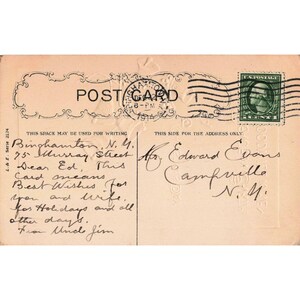 POST CARD
BINGHAMTON, N.Y.
6-PM
U.S. POSTAGE
1 CENT 1
THIS SPACE MAY BE USED FOR WRITING
THIS SIDE FOR THE ADDRESS ONLY
Binghamton, N.Y.
75 Murray Street
Dear Ed. This
Card means
Best Wishes for
you and Wife.
for Holidays and all
other days.
From Uncle Jim
Mr. Edward Evans
Campville
N.Y.